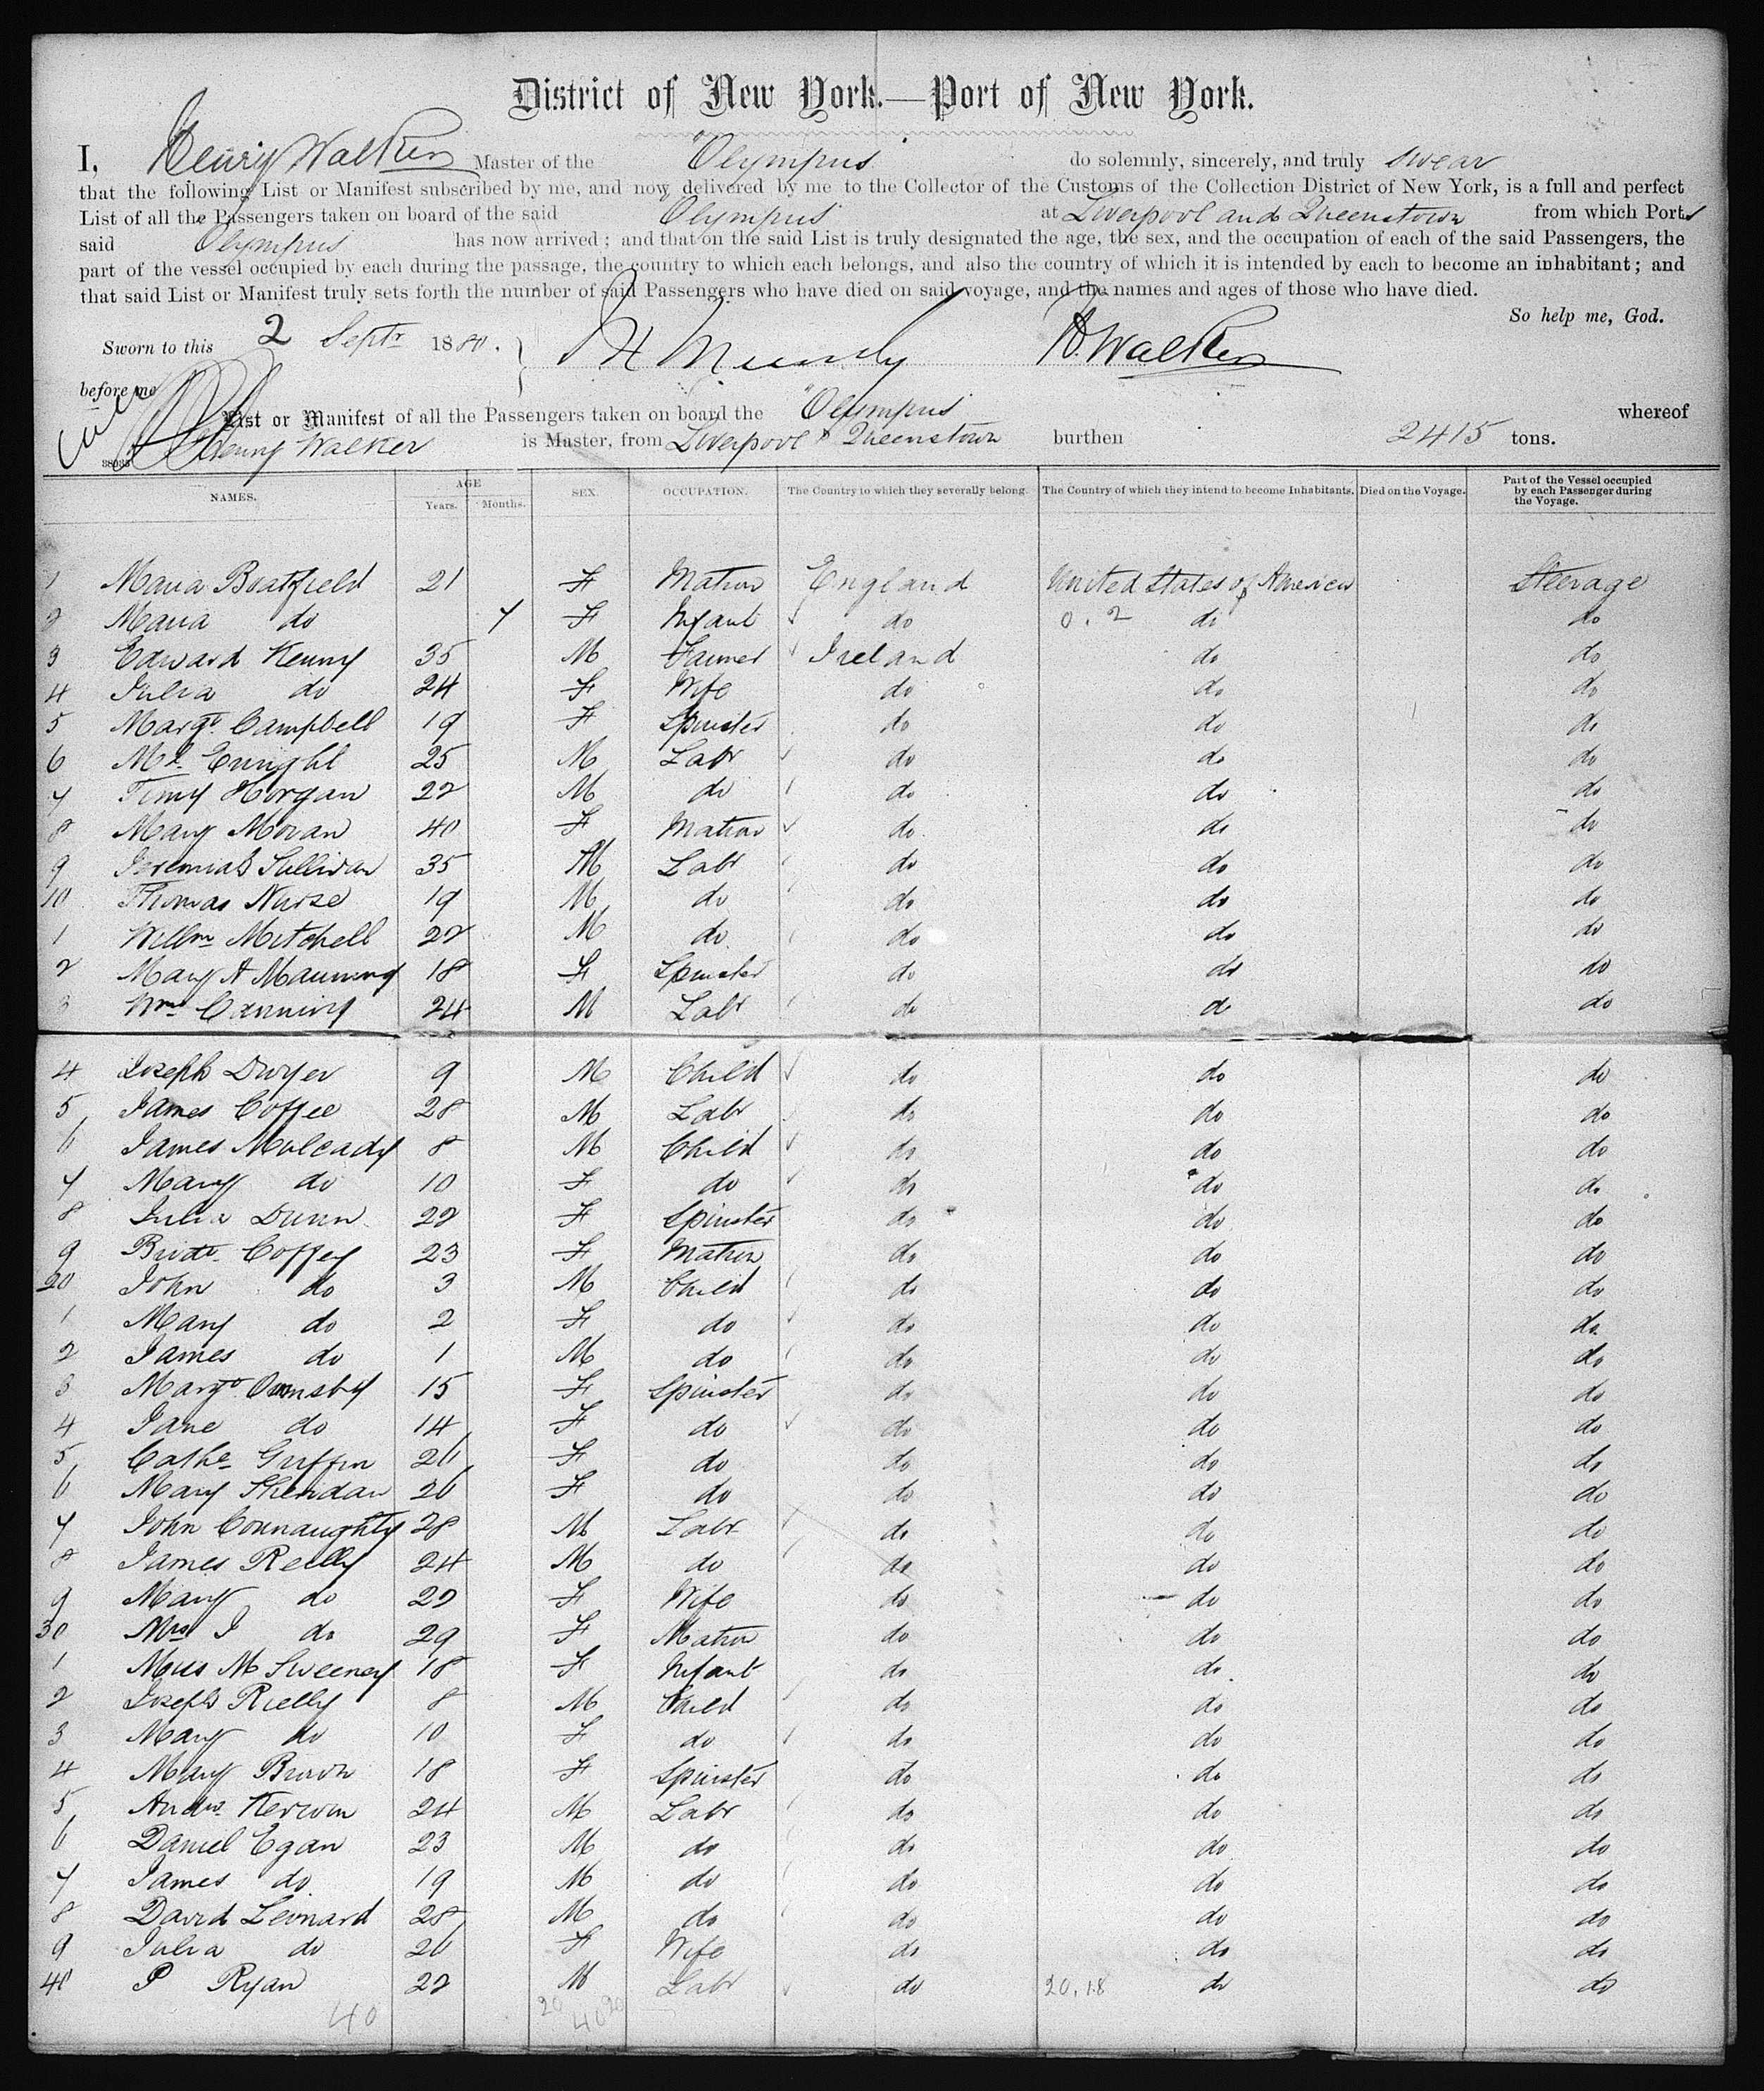 District of New York.—Port of New York.
I, Henry Walker Master of the "Olympus" do solemnly, sincerely, and truly swear
that the following List or Manifest subscribed by me, and now delivered by me to the Collector of the Customs of the Collection District of New York, is a full and perfect
List of all the Passengers taken on board of the said Olympus at Liverpool and Queenstown from which Ports
said Olympus has now arrived; and that on the said List is truly designated the age, the sex, and the occupation of each of the said Passengers, the
part of the vessel occupied by each during the passage, the country to which each belongs, and also the country of which it is intended by each to become an inhabitant; and
that said List or Manifest truly sets forth the number of said Passengers who have died on said voyage, and the names and ages of those who have died.
So help me, God.
Sworn to this 2 Septr 1880. H. Walker
before me
List or Manifest of all the Passengers taken on board the "Olympus" whereof
Henry Walker is Master, from Liverpool & Queenstown burthen 2415 tons.
NAMES. AGE Years. Months. SEX. OCCUPATION. The Country to which they severally belong. The Country of which they intend to become Inhabitants. Died on the Voyage. Part of the Vessel occupied by each Passenger during the Voyage.
1 Maria Boatfield 21 F Matron England United States of America Steerage
2 Maria do 7 F Infant do 0.2 do do
3 Edward Kenny 35 M Farmer Ireland do do
4 Julia do 24 F Wife do do do
5 Margt. Campbell 19 F Spinster do do do
6 Ml. Enright 25 M Labr do do do
7 Timy Horgan 22 M do do do do
8 Mary Moran 40 F Matron do do do
9 Jeremiah Sullivan 35 M Labr do do do
10 Thomas Nurse 19 M do do do do
1 Willm Mitchell 22 M do do do do
2 Mary A Manning 18 F Spinster do do do
3 Wm Canning 24 M Labr do do do
4 Joseph Dwyer 9 M Child do do do
5 James Coffee 28 M Labr do do do
6 James Mulcady 8 M Child do do do
7 Mary do 10 F do do do do
8 Julia Dunn 22 F Spinster do do do
9 Bridt. Coffey 23 F Matron do do do
20 John do 3 M Child do do do
1 Mary do 2 F do do do do
2 James do 1 M do do do do
3 Margt Ormsby 15 F Spinster do do do
4 Jane do 14 F do do do do
5 Cathe Griffin 26 F do do do do
6 Mary Sheridan 26 F do do do do
7 John Connaughty 28 M Labr do do do
8 James Reilly 24 M do do do do
9 Mary do 22 F Wife do do do
30 Mrs J do 29 F Matron do do do
1 Miss M Sweeney 18 F Infant do do do
2 Joseph Rielly 8 M Child do do do
3 Mary do 10 F do do do do
4 Mary Brown 18 F Spinster do do do
5 Andw. Kerwin 24 M Labr do do do
6 Daniel Egan 23 M do do do do
7 James do 19 M do do do do
8 David Leonard 28 M do do do do
9 Julia do 26 F Wife do do do
40 P Ryan 22 M Labr do 20.18 do do
40 20 40 20